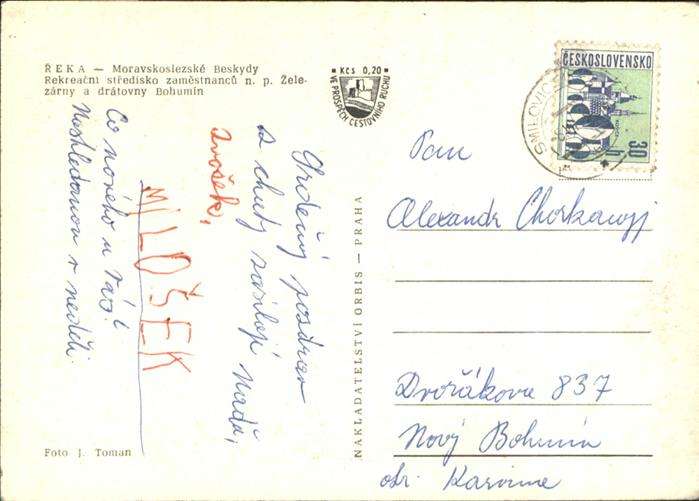 ŘEKA — Moravskoslezské Beskydy
Rekreační středisko zaměstnanců n. p. Žele-
zárny a drátovny Bohumín
Kčs 0,20
VE PROSPĚCH CESTOVNÍHO RUCHU
ČESKOSLOVENSKO
30 h
SMILOVIC
Srdečný pozdrav
a chuty zasílají Naďa,
Ivošek,
MILOŠEK
Co nového u Vás?
Nashledanou v neděli.
Foto J. Toman
NAKLADATELSTVÍ ORBIS — PRAHA
Pan
Alexandr
Dvořákova 837
Nový Bohumín
okr. Karvinne